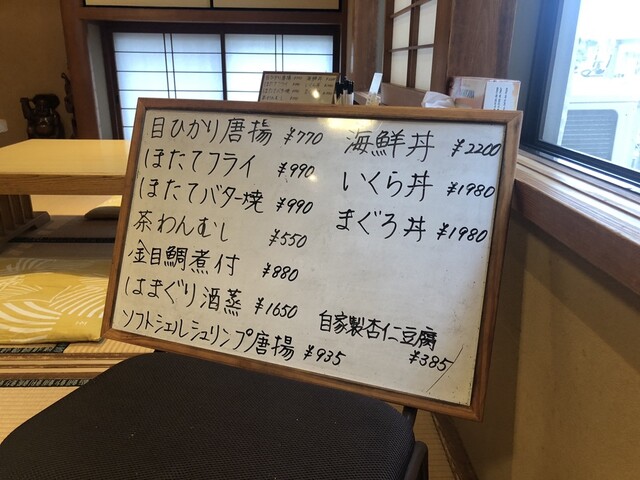 目ひかり唐揚 ¥770
ほたてフライ ¥990
ほたてバター焼 ¥990
茶わんむし ¥550
金目鯛煮付 ¥880
はまぐり酒蒸 ¥1650
ソフトシェルシュリンプ唐揚 ¥935
海鮮丼 ¥2200
いくら丼 ¥1980
まぐろ丼 ¥1980
自家製杏仁豆腐
¥385